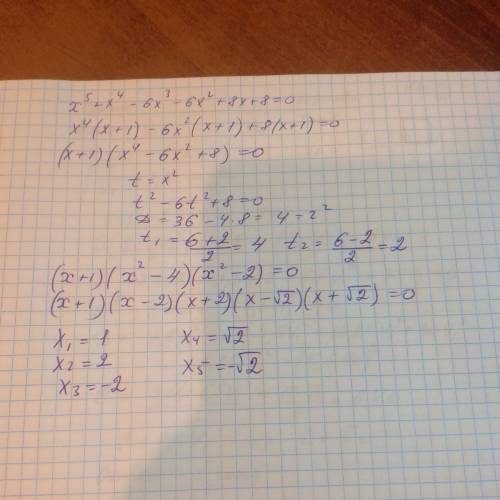 x⁵ + x⁴ - 6x³ - 6x² + 8x + 8 = 0
x⁴(x+1) - 6x²(x+1) + 8(x+1) = 0
(x+1)(x⁴ - 6x² + 8) = 0
t = x²
t² - 6t² + 8 = 0
D = 36 - 4·8 = 4 - 2²
t₁ = (6+2)/2 = 4 t₂ = (6-2)/2 = 2
(x+1)(x² - 4)(x² - 2) = 0
(x+1)(x-2)(x+2)(x-√2)(x+√2) = 0
x₁ = 1 x₄ = √2
x₂ = 2 x₅ = -√2
x₃ = -2